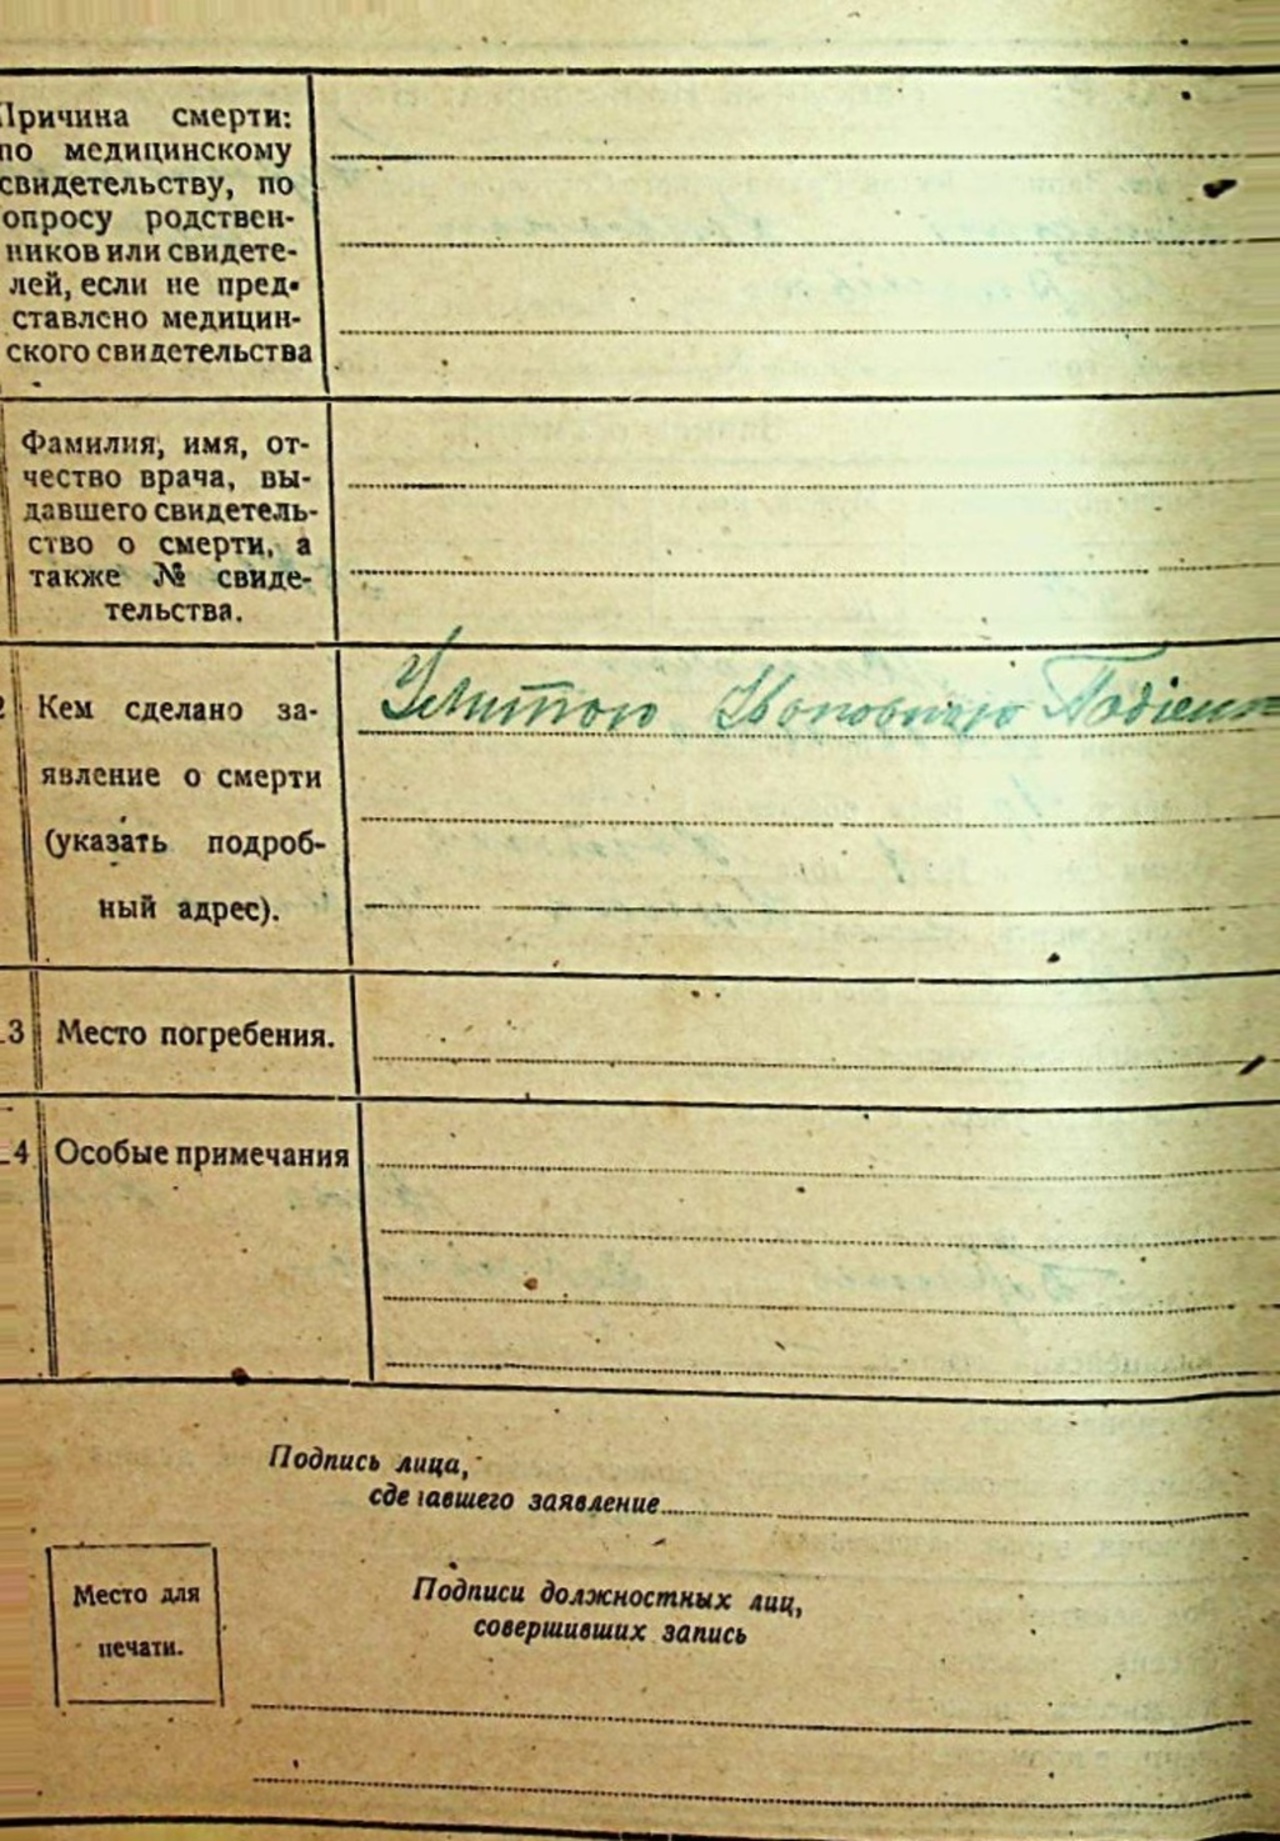 Причина смерти:
по медицинскому
свидетельству, по
опросу родствен-
ников или свидете-
лей, если не пред-
ставлено медицин-
ского свидетельства
Фамилия, имя, от-
чество врача, вы-
давшего свидетель-
ство о смерти, а
также № свиде-
тельства.
2 Кем сделано за-
явление о смерти
(указать подроб-
ный адрес).
3 Место погребения.
4 Особые примечания
Подпись лица,
сделавшего заявление
Место для
печати.
Подписи должностных лиц,
совершивших запись